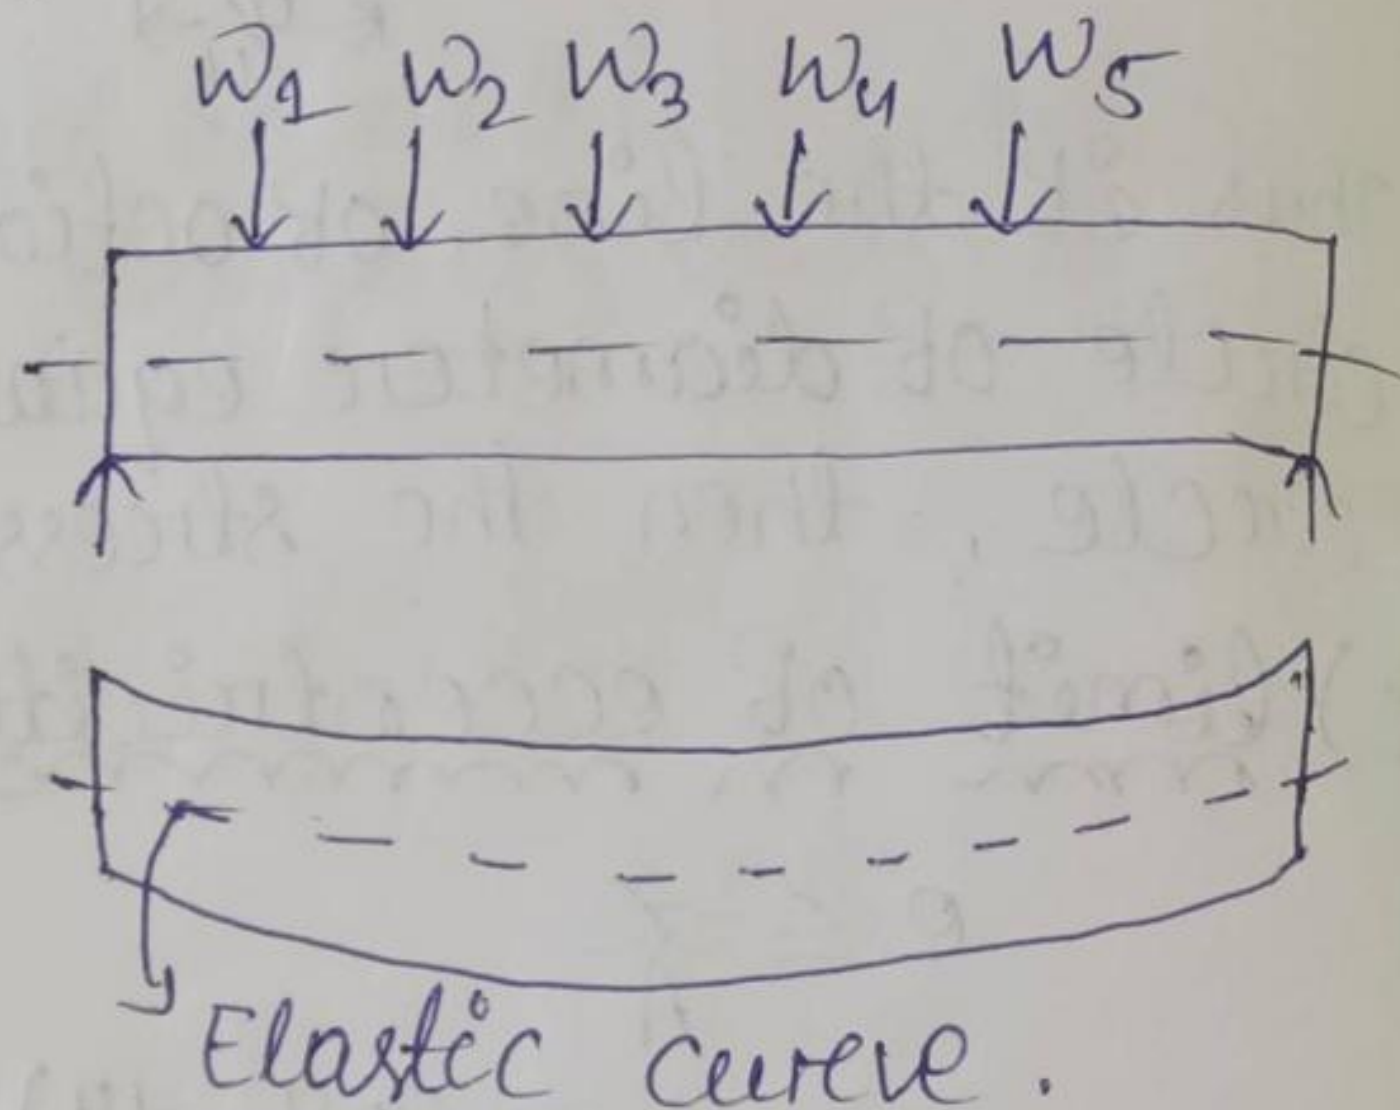 W1 W2 W3 W4 W5
Elastic curve.